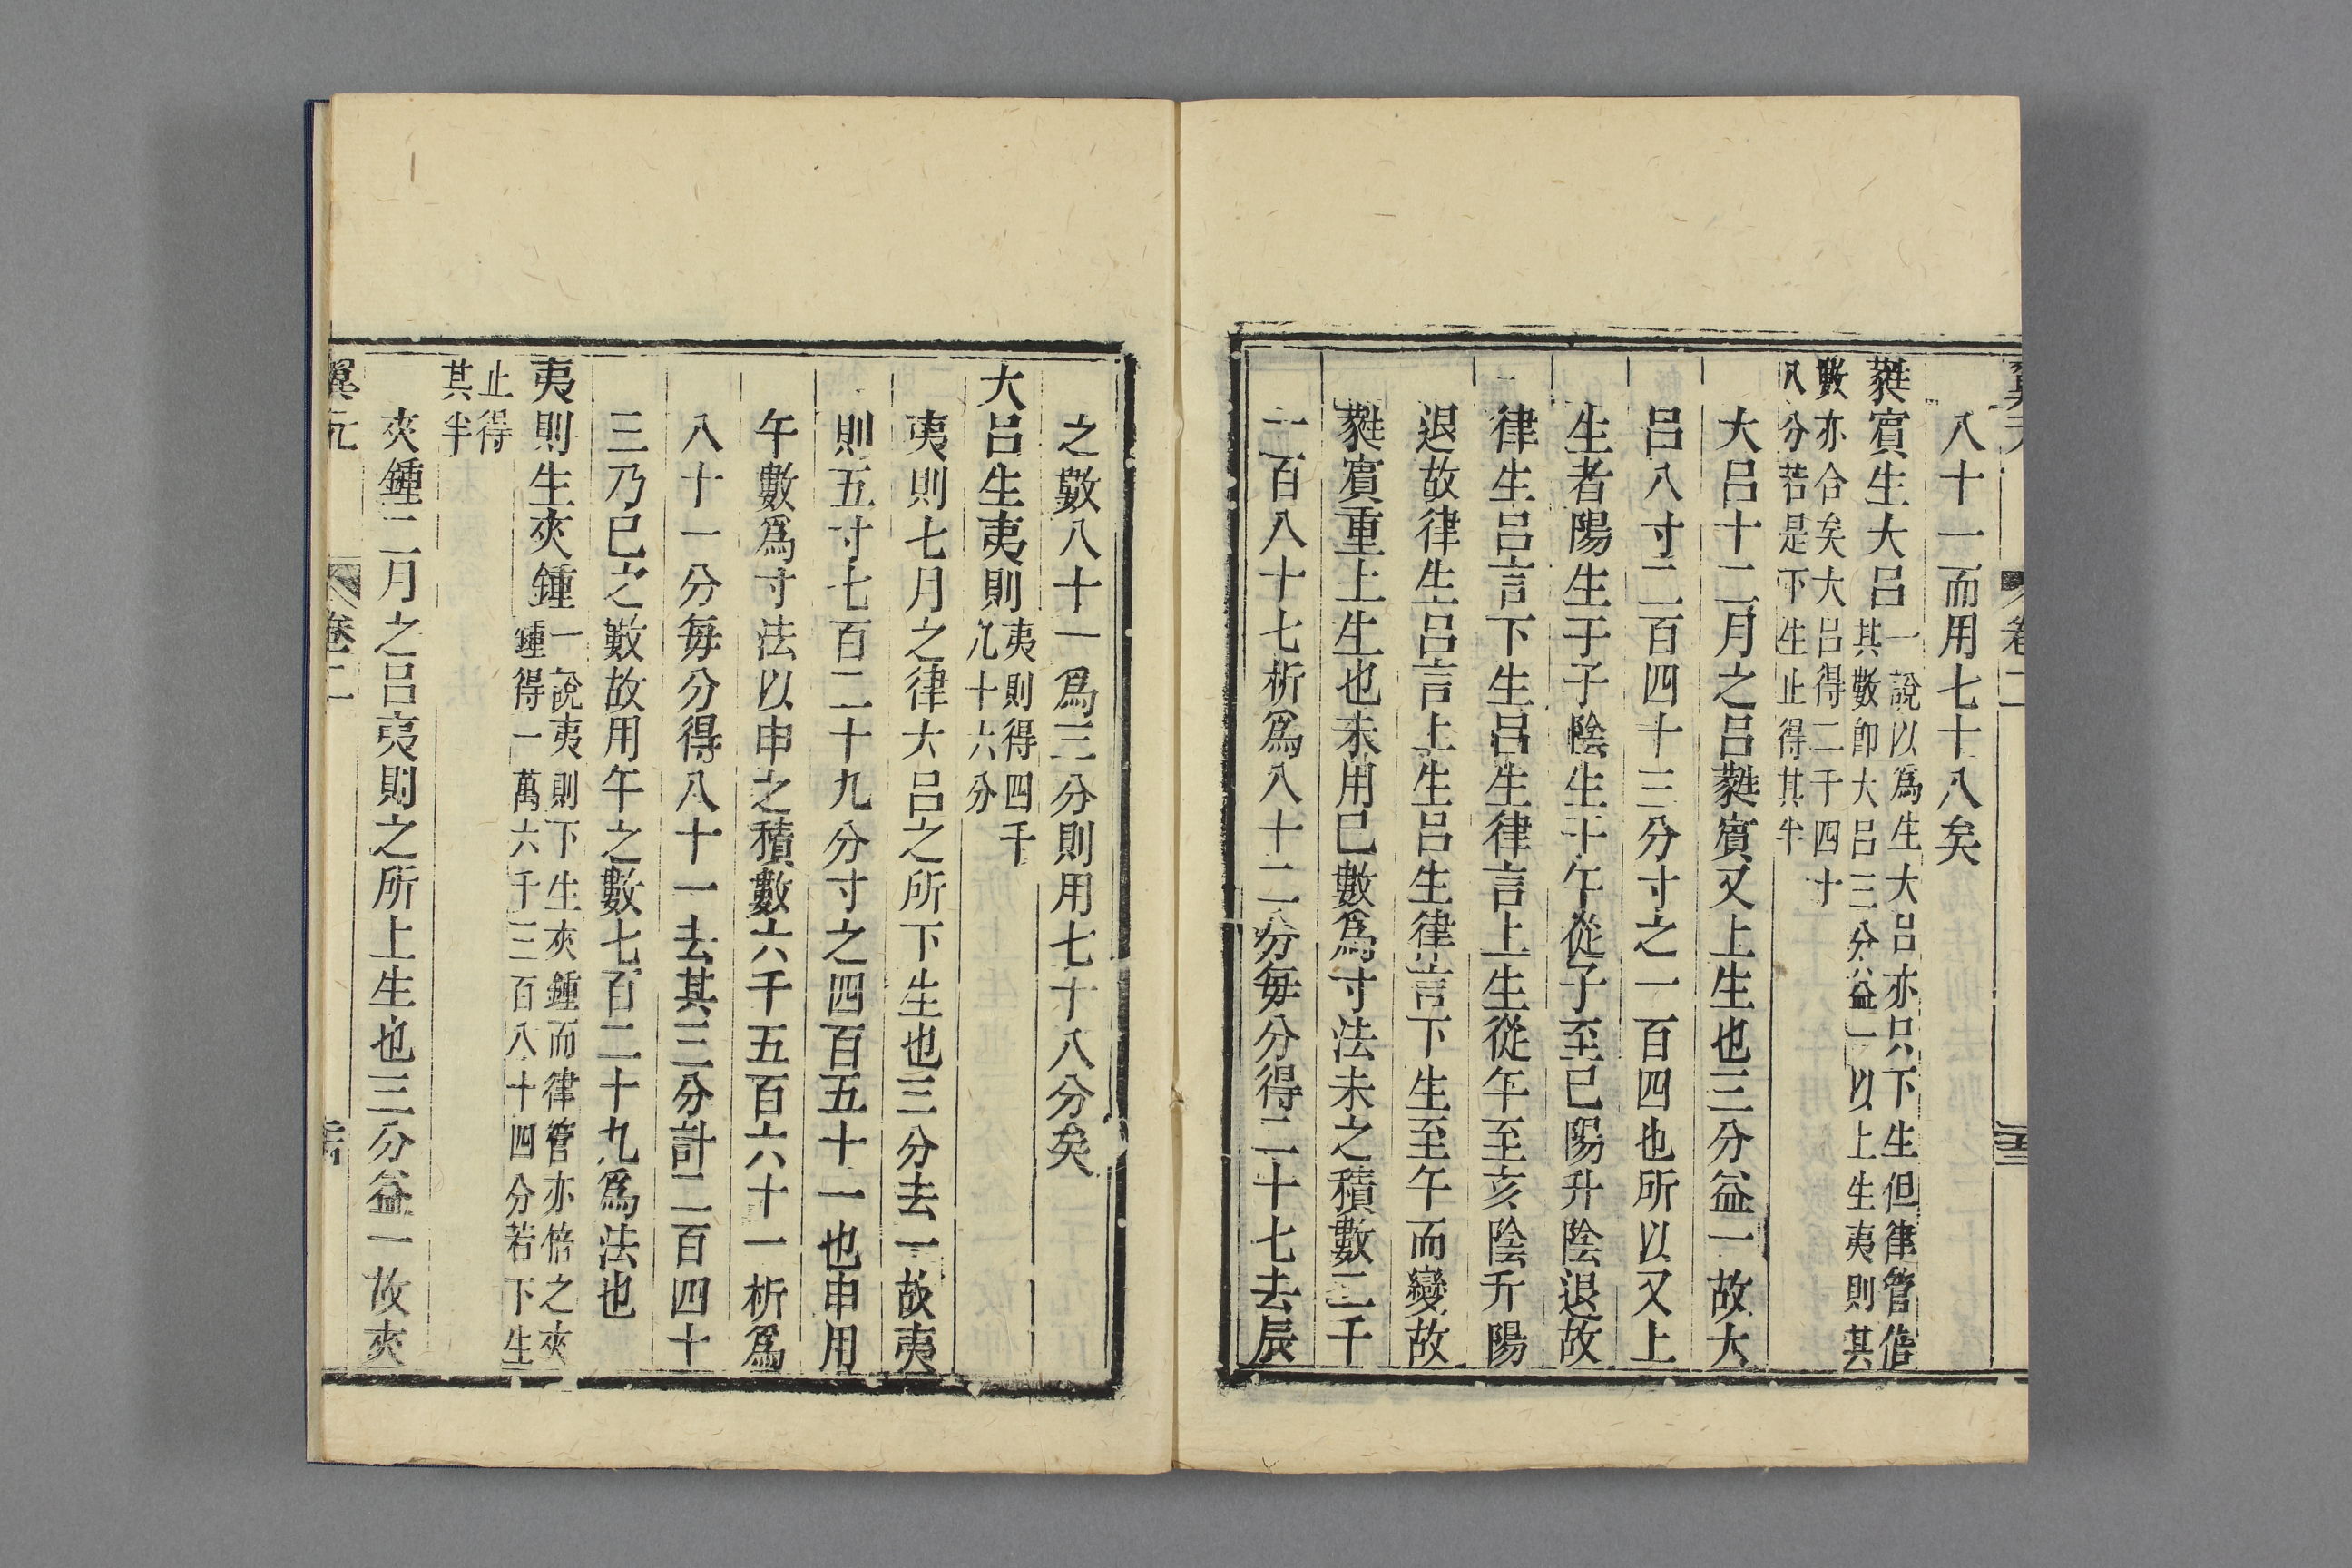 八十一而用七十八矣
蕤賓生大呂一說以爲生大呂亦只下生但律管倍
其數卽大呂三分益一以上生夷則其
數亦合矣大呂得二千四寸
八分若是下生止得其半
大呂十二月之呂蕤賓又上生也三分益一故大
呂八寸二百四十三分寸之一百四也所以又上
生者陽生于子陰生于午從子至巳陽升陰退故
律生呂言下生呂生律言上生從午至亥陰升陽
退故律生呂言上生呂生律言下生至午而變故
蕤賓重上生也未用巳數爲寸法未之積數二千
一百八十七析爲八十二分每分得二十七去辰
之數八十一爲三分則用七十八分矣
大呂生夷則夷則得四千
九十六分
夷則七月之律大呂之所下生也三分去一故夷
則五寸七百二十九分寸之四百五十一也申用
午數爲寸法以申之積數六千五百六十一析爲
八十一分每分得八十一去其三分計二百四十
三乃巳之數故用午之數七百二十九爲法也
夷則生夾鍾一說夷則下生夾鍾而律管亦倍之夾
鍾得一萬六千三百八十四分若下生
止得
其半
夾鍾二月之呂夷則之所上生也三分益一故夾
翼元
卷二